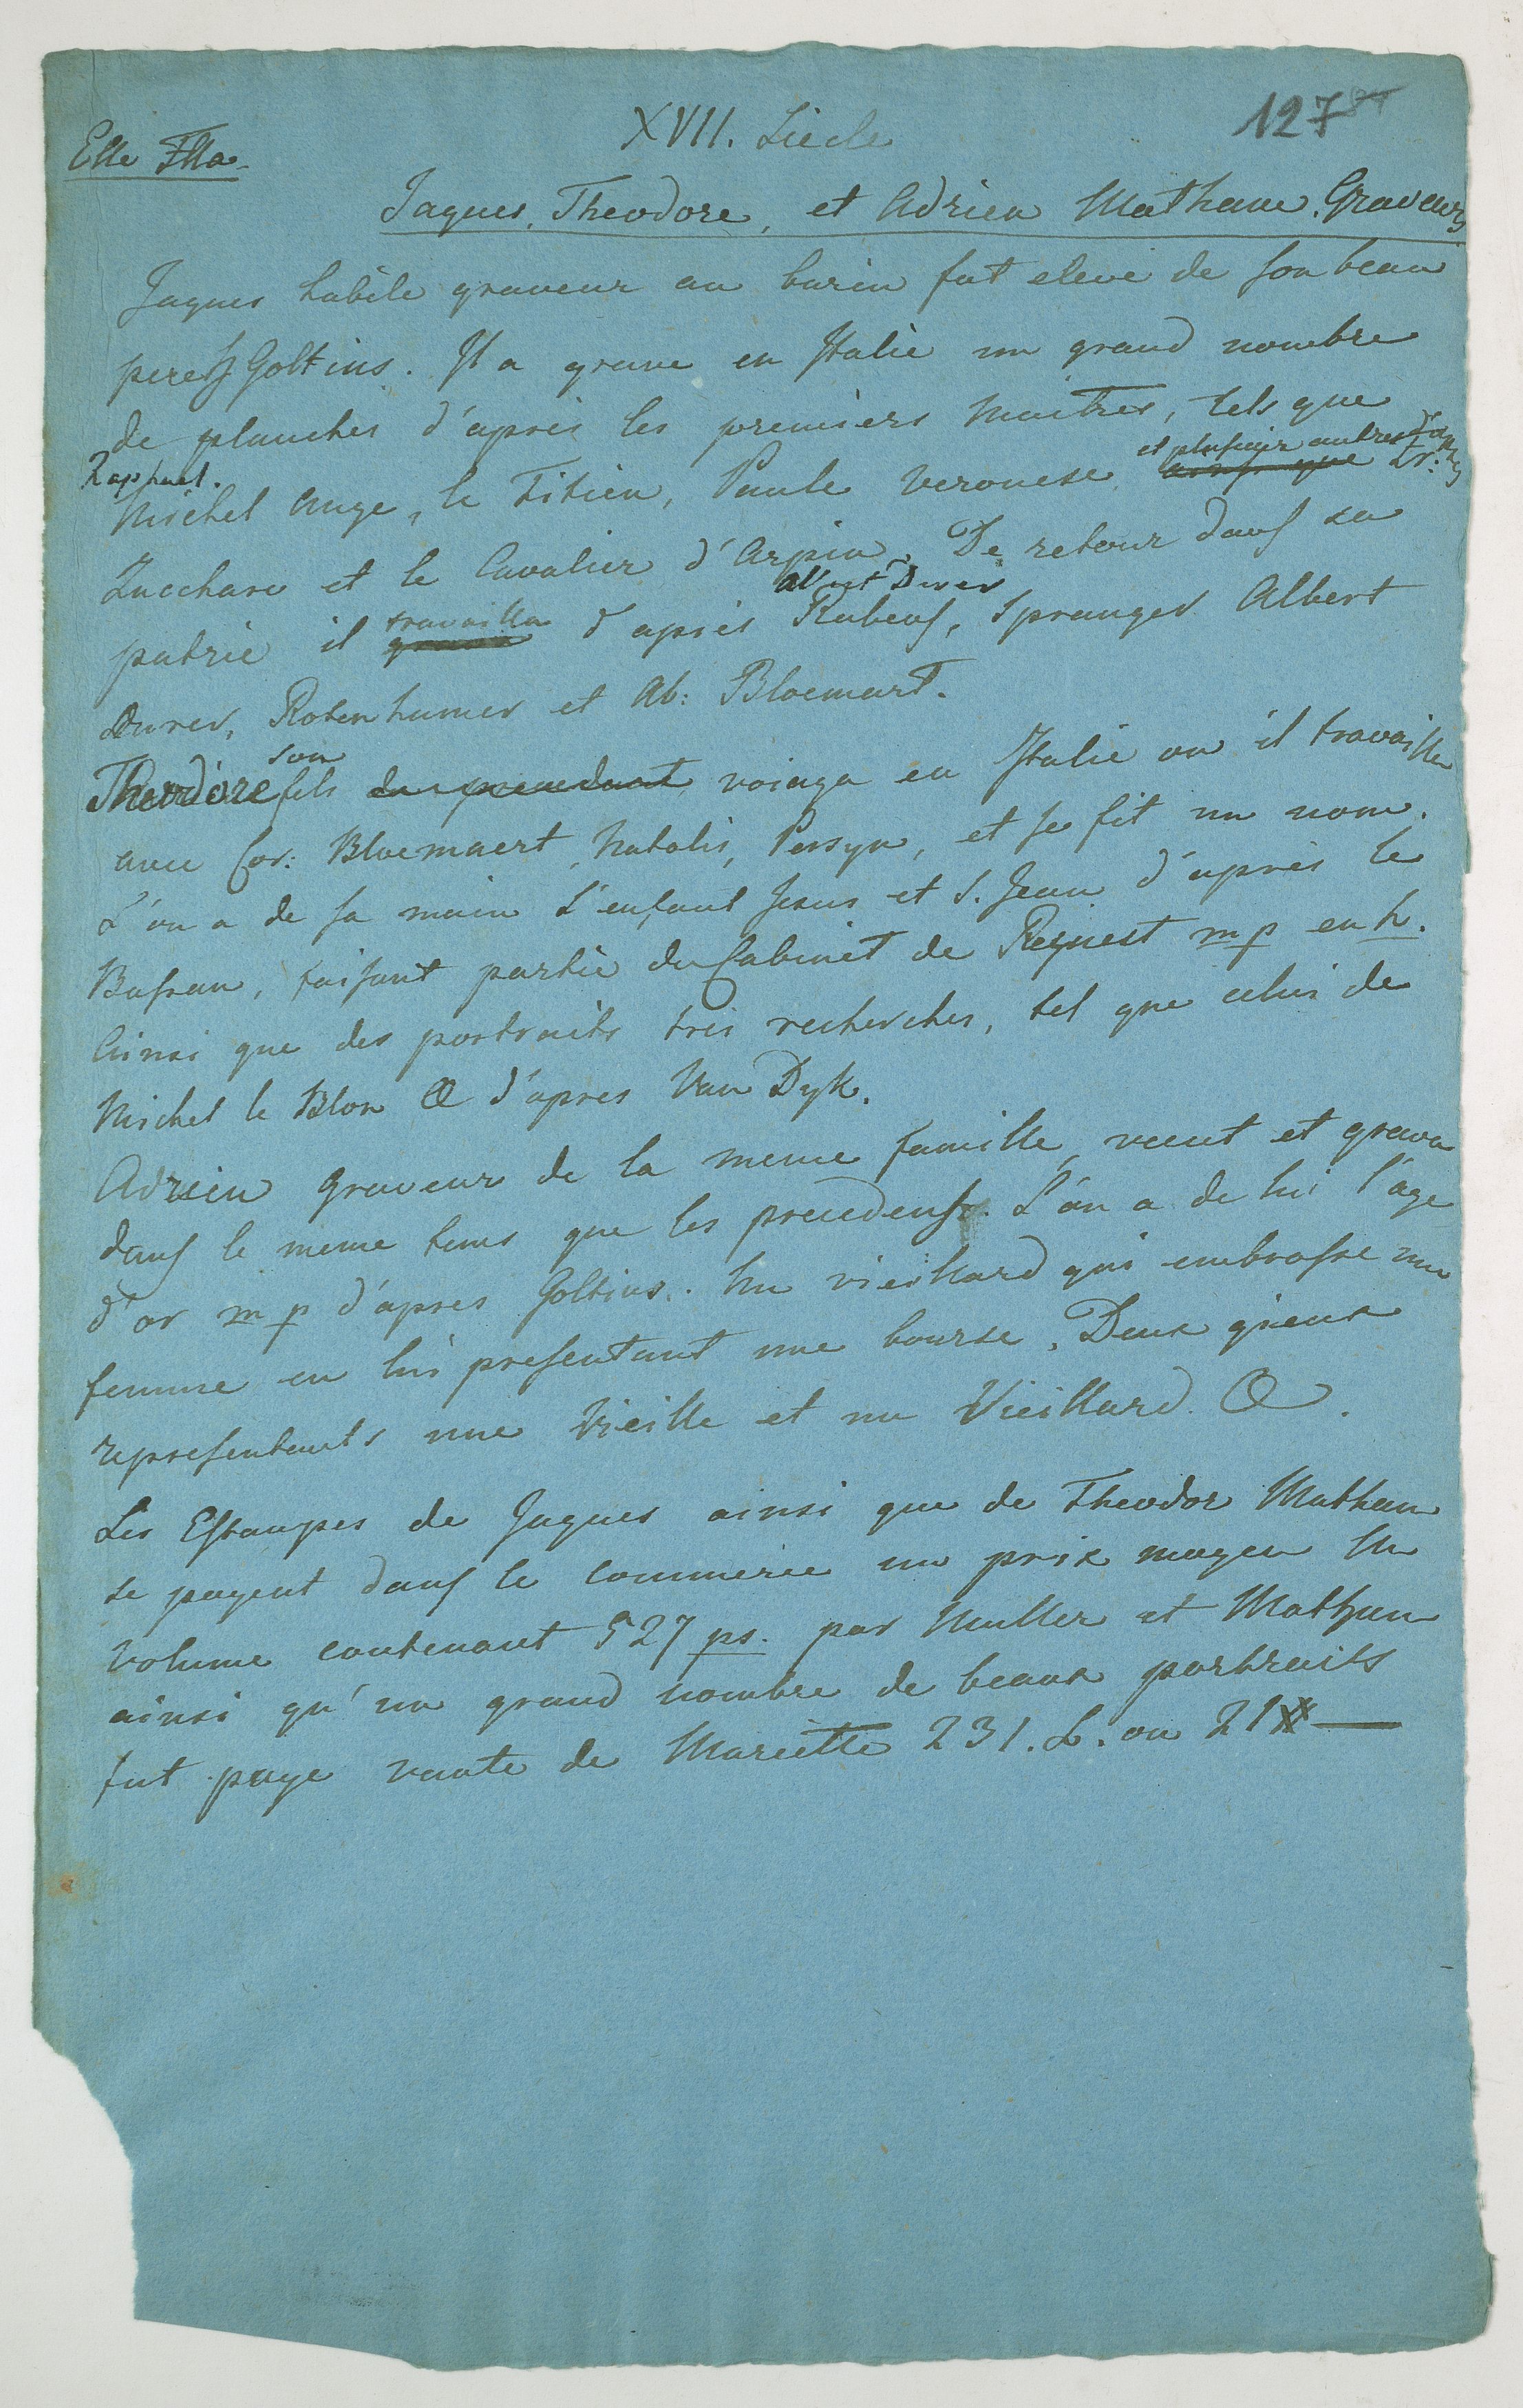 XVII. Siecle
127
Elle Fla.
Jaques, Theodore, et Adrien Mathane. Graveurs
Jaques habile graveur au burin fut eleve de son beau
pere H Goltius. Il a grave en Italie un grand nombre
de planches d'après les premiers Maitres, tels que
Raphael.
Michel Ange, le Titien, Paule Veronese et plusieur autres ainsi que Fr:
Zuccharo et le Cavalier d'Arpin. De retour dans sa
patrie il grava travailla d'après Albert Durer Rubens, Spranger Albert
Durer, Rotenhamer et Ab: Bloemart.
Theodore son fils du precedent voiaga en Italie ou il travailla
avec Cor: Bloemaert, Natalis, Persyn, et se fit un nom.
L'on a de sa main L'enfant Jesus et S. Jean d'après le
Bassan, faisant partie du Cabinet de Reynst m p en h.
Ainsi que des portraits tres recherches, tel que celui de
Michel le Blon d'apres Van Dyk.
Adrien graveur de la meme famille, vecut et grava
dans le meme tems que les precedens. L'on a de lui l'age
d'or m p d'apres Goltius. Un vieillard qui embrasse une
femme en lui presentant une bourse. Deux gueux
representants une Vieille et un Vieillard.
Les Estampes de Jaques ainsi que de Theodor Mathan
se payent dans le Commerce un prix moyen Un
Volume contenant 527 ps. par Muller et Mathan
ainsi qu'un grand nombre de beaux portraits
fut paye vante de Mariette 231. L. ou 21 # —